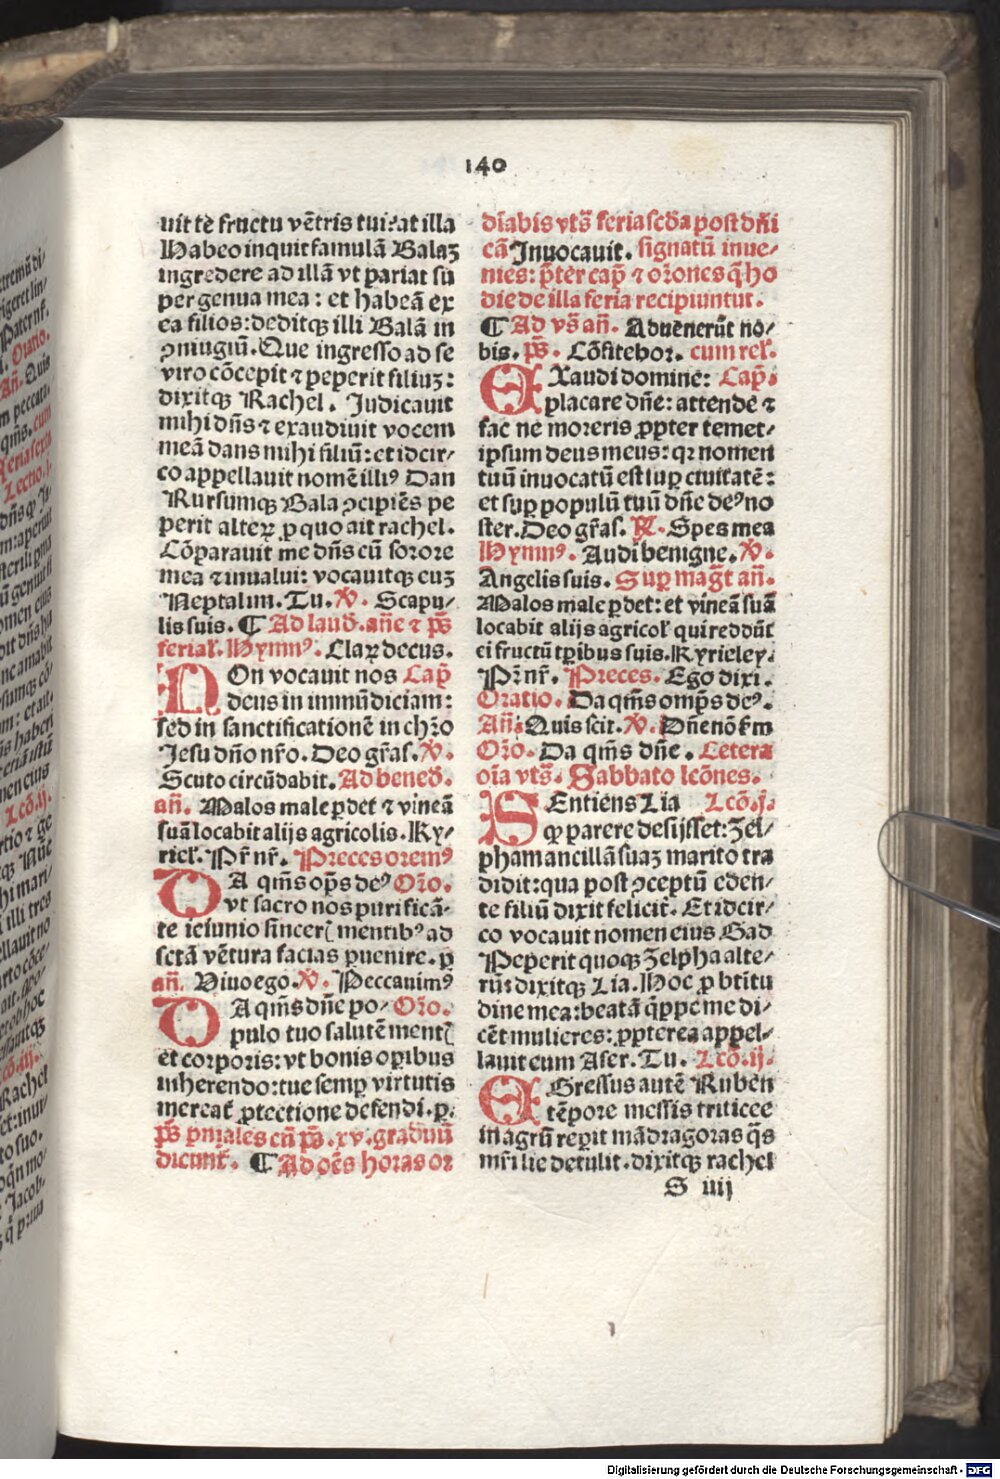 140
uit te fructu vētris tui: at illa
Habeo inquit famulā Balaʒ
ingredere ad illā vt pariat su
per genua mea: et habeā ex
ea filios: deditqꝫ illi Balā in
ꝯniugiū. Que ingresso ad se
viro cōcepit ⁊ peperit filiuʒ:
dixitqꝫ Rachel. Judicauit
mihi dn̄s ⁊ exaudiuit vocem
meā dans mihi filiū: et idcir⸗
co appellauit nomē illiꝰ Dan
Rursumqꝫ Bala ꝯcipiēs pe
perit alteꝝ ꝓ quo ait rachel.
Cōparauit me dn̄s cū sorore
mea ⁊ inualui: vocauitqꝫ euʒ
Neptalim. Tu. V̾. Scapu⸗
lis suis. ¶ Ad laud̄. an̄e ⁊ pš
ferial̓. Hymnꝰ. Claꝝ decus.
NOn vocauit nos Cap̄
deus in immūdiciam:
sed in sanctificationē in chr̄o
Jesu dn̄o nr̄o. Deo gr̄as. V̾.
Scuto circūdabit. Ad bened̄.
an̄. Malos male ꝑdet ⁊ vineā
suā locabit alijs agricolis. Ky⸗
riel̓. Pr̄ nr̄. Preces oremꝰ
DA qm̄s op̄s deꝰ Or̄o.
vt sacro nos purificā⸗
te ieiunio sinceri mentibꝰ ad
sctā vētura facias ꝑuenire. ꝑ
an̄. Viuo ego. V̾. Peccauimꝰ
DA qm̄s dn̄e po⸗ Or̄o.
pulo tuo salutē menti
et corporis: vt bonis oꝑibus
inherendo: tue semꝑ virtutis
mereat̄ ꝓtectione defendi. ꝑ.
pš pn̄iales cū pš. xv. graduū
dicunt̄. ¶ Ad oēs horas or
dīabis vtš feria scd̄a post dn̄i
cā Jnuocauit. signatū inue⸗
nies: p̄ter cap̄ ⁊ or̄ones q̄ ho
die de illa feria recipiuntur.
¶ Ad vš an̄. Aduenerūt no⸗
bis. pš. Cōfitebor. cum rel̓.
EXaudi domine: Cap̄.
placare dn̄e: attende ⁊
fac ne moreris ꝓpter temet⸗
ipsum deus meus: qꝛ nomen
tuū inuocatū est suꝑ ciuitatē:
et suꝑ populū tuū dn̄e deꝰ no
ster. Deo gr̄as. ℟. Spes mea
Hymnꝰ. Audi benigne. V̾.
Angelis suis. Suꝑ magt̄ an̄.
Malos male ꝑdet: et vineā suā
locabit alijs agricol̓ qui reddūt
ei fructū tꝑibus suis. Kyrieley.
Pr̄ nr̄. Preces. Ego dixi.
Oratio. Da qm̄s omp̄s deꝰ.
An̄. Quis scit. V̾. Dn̄e nō fm
Or̄o. Da qm̄s dn̄e. Cetera
oīa vtš. Sabbato lcōnes.
SEntiens Lia Lcō.j.
ꝙ parere desijsset: Zel⸗
pham ancillā suaʒ marito tra
didit: qua post ꝯceptū eden⸗
te filiū dixit felicit̄. Et idcir⸗
co vocauit nomen eius Gad
Peperit quoqꝫ Zelpha alte⸗
rū: dixitqꝫ Lia. Hoc ꝓ bt̄itu
dine mea: beatā q̄ppe me di⸗
cēt mulieres: ꝓpterea appel⸗
lauit eum Aser. Tu. Lcō.ij.
EGressus autē Ruben
tēpore messis triticee
in agrū reꝑit mādragoras q̄s
mr̄i lie detulit. dixitqꝫ rachel
S iiij
Digitalisierung gefördert durch die Deutsche Forschungsgemeinschaft - DFG